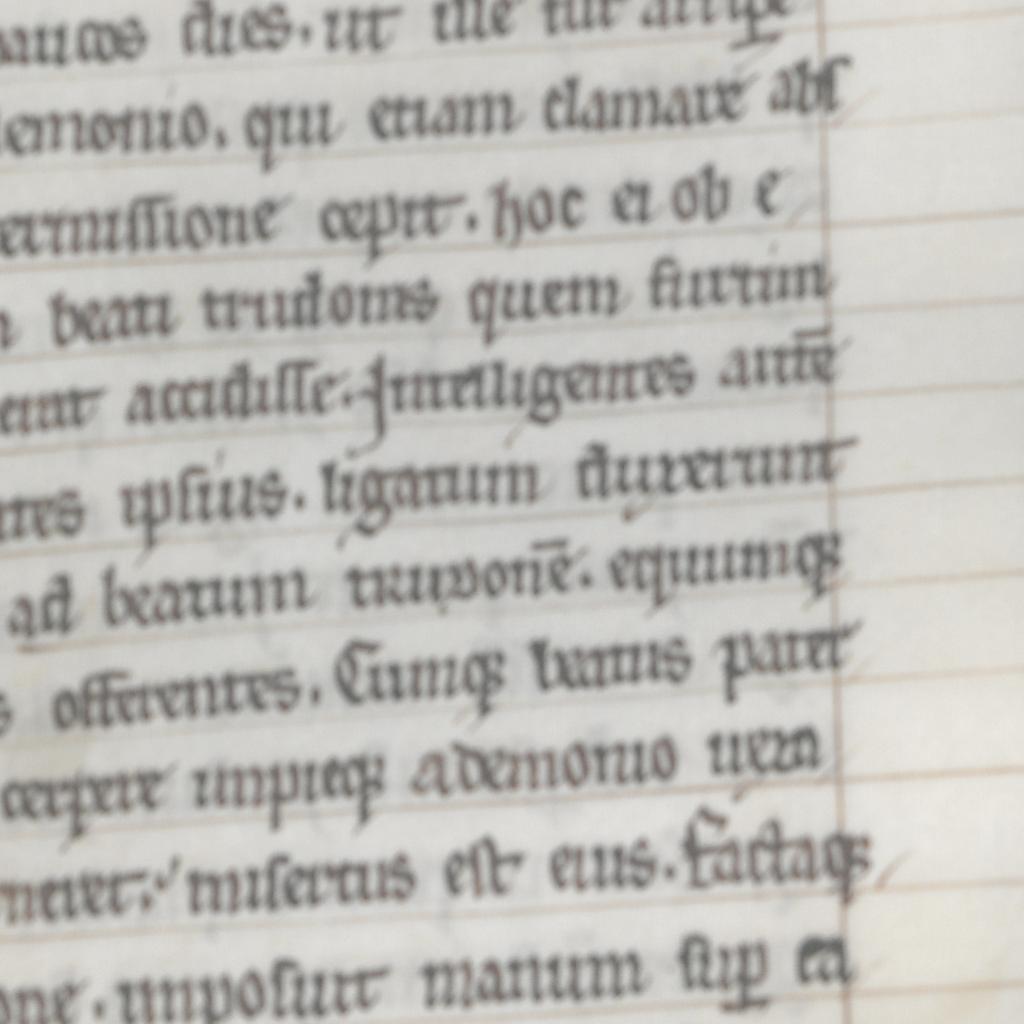 paucos dies. ut ille fur arripe
demonio. qui etiam clamare abſ
ermiſſione cepit. hoc ei ob e
beati trudonis quem furtim
erunt accidiſſe. Intelligentes aūtē
ipſius. ligatum duxerunt
ad beatum trudonē. equumqꝫ
offerentes. Cumqꝫ beatus pater
cerpere impieqꝫ a demonio uexa
miſertus eſt eius. factaqꝫ
one. impoſuit manum ſuꝑ ea